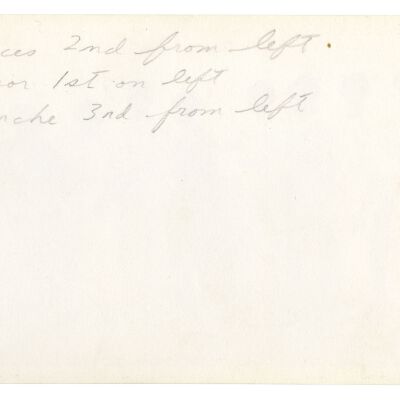 ces 2nd from left.
or 1st on left
nche 3nd from left